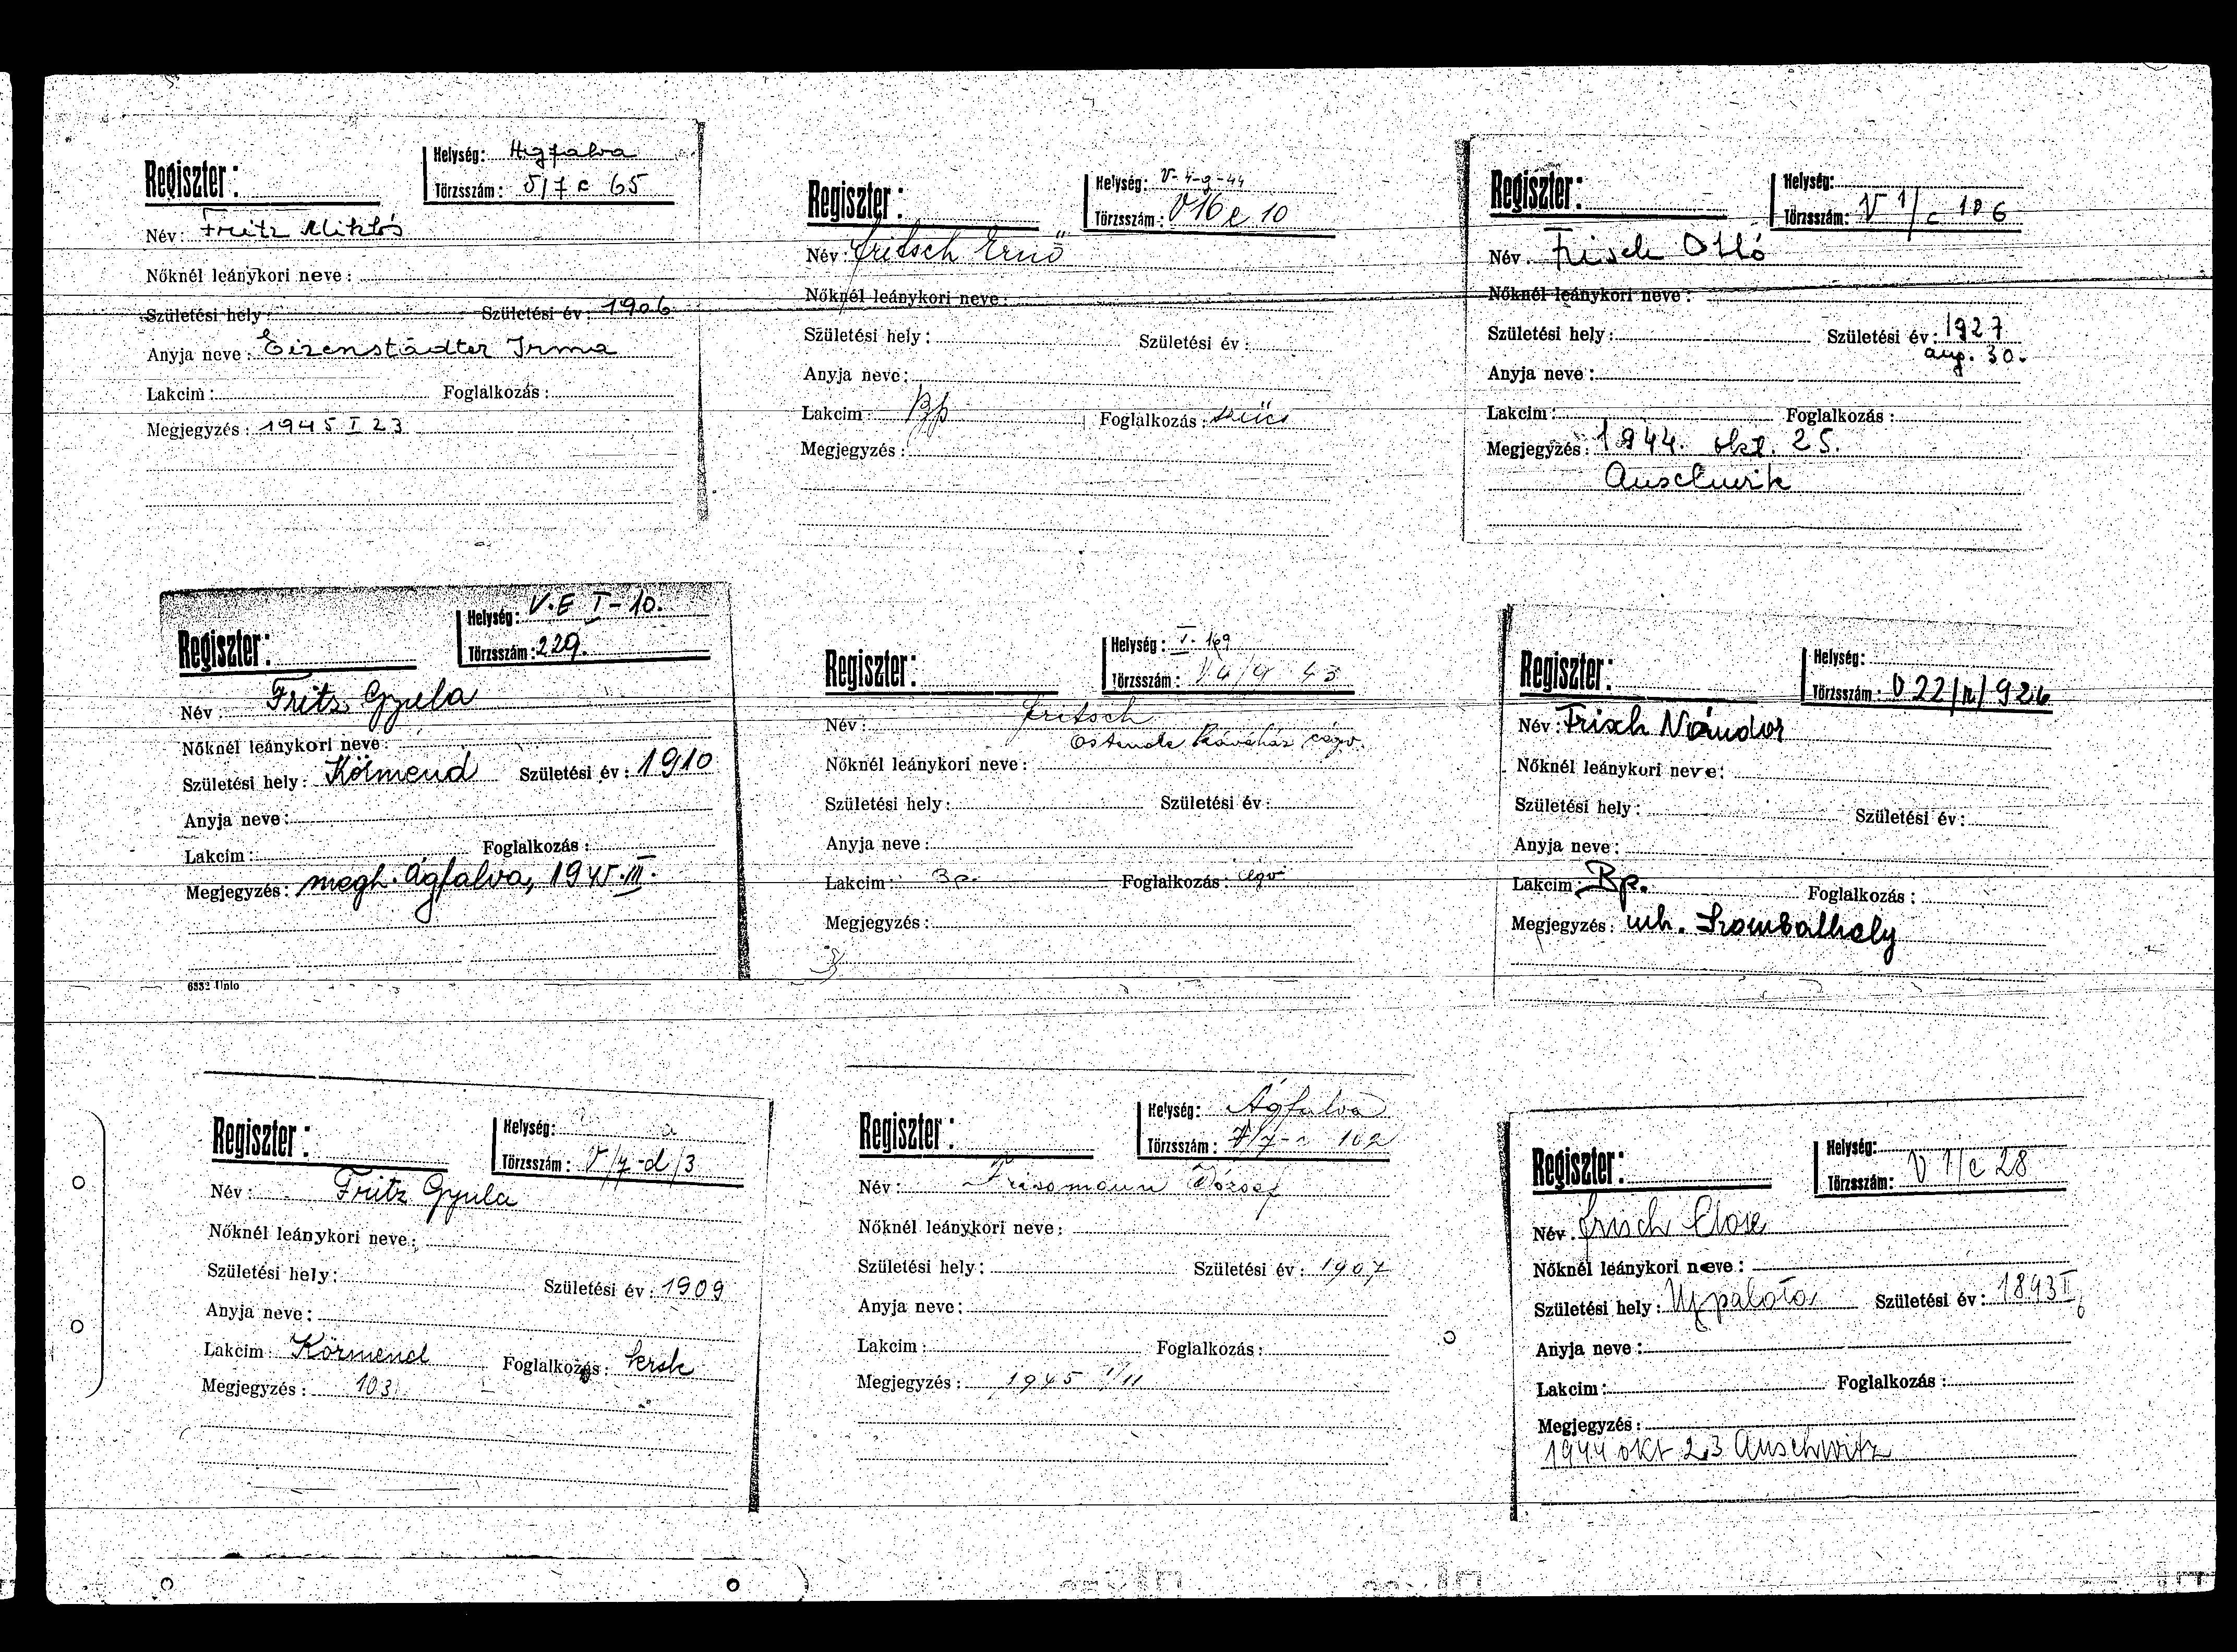 Regiszter:
Helység: Agfalva
Törzsszám: 5/7 c 65
Név: Fritz Miklós
Nőknél leánykori neve:
Születési hely: Születési év: 1906
Anyja neve: Eizenstädter Irma
Lakcim: Foglalkozás:
Megjegyzés: 1945 I 23
Regiszter:
Helység: V-4-g-44
Törzsszám: V16 e 10
Név: Fritsch Ernő
Nőknél leánykori neve:
Születési hely: Születési év:
Anyja neve:
Lakcim: Bp Foglalkozás: szücs
Megjegyzés:
Regiszter:
Helység:
Törzsszám: V 1/c 186
Név. Frisch Ottó
Nőknél leánykori neve:
Születési hely: Születési év: 1927
aug. 30.
Anyja neve:
Lakcim: Foglalkozás:
Megjegyzés: 1944. okt. 25.
Auschwitz
Regiszter:
Helység: V.E I-10.
Törzsszám: 229.
Név: Fritz Gyula
Nőknél leánykori neve:
Születési hely: Körmend Születési év: 1910
Anyja neve:
Lakcim: Foglalkozás:
Megjegyzés: megh. Ágfalva, 1945.III.
6332 Unio
Regiszter:
Helység: I. 169
Törzsszám: 43
Név: Fritsch
Ostende Kávéház cégv.
Nőknél leánykori neve:
Születési hely: Születési év:
Anyja neve:
Lakcim: Bp. Foglalkozás: cégv
Megjegyzés:
Regiszter:
Helység:
Törzsszám: V 22/n/926
Név: Frisch Nándor
Nőknél leánykori neve:
Születési hely: Születési év:
Anyja neve:
Lakcim: Bp. Foglalkozás:
Megjegyzés: mh. Szombathely
Regiszter:
Helység:
Törzsszám: V/7-d/3
Név: Fritz Gyula
Nőknél leánykori neve:
Születési hely: Születési év: 1909
Anyja neve:
Lakcim: Körmend Foglalkozás: kersk
Megjegyzés: 103
Regiszter:
Helység: Ágfalva
Törzsszám: 102
Név: József
Nőknél leánykori neve:
Születési hely: Születési év: 1907
Anyja neve:
Lakcim: Foglalkozás:
Megjegyzés: 1945 I/11
Regiszter:
Helység:
Törzsszám: V 1/c 28
Név. Frisch
Nőknél leánykori neve:
Születési hely: Ujpalota Születési év: 1893 II
6
Anyja neve:
Lakcim: Foglalkozás:
Megjegyzés:
1944 okt 23 Auschwitz